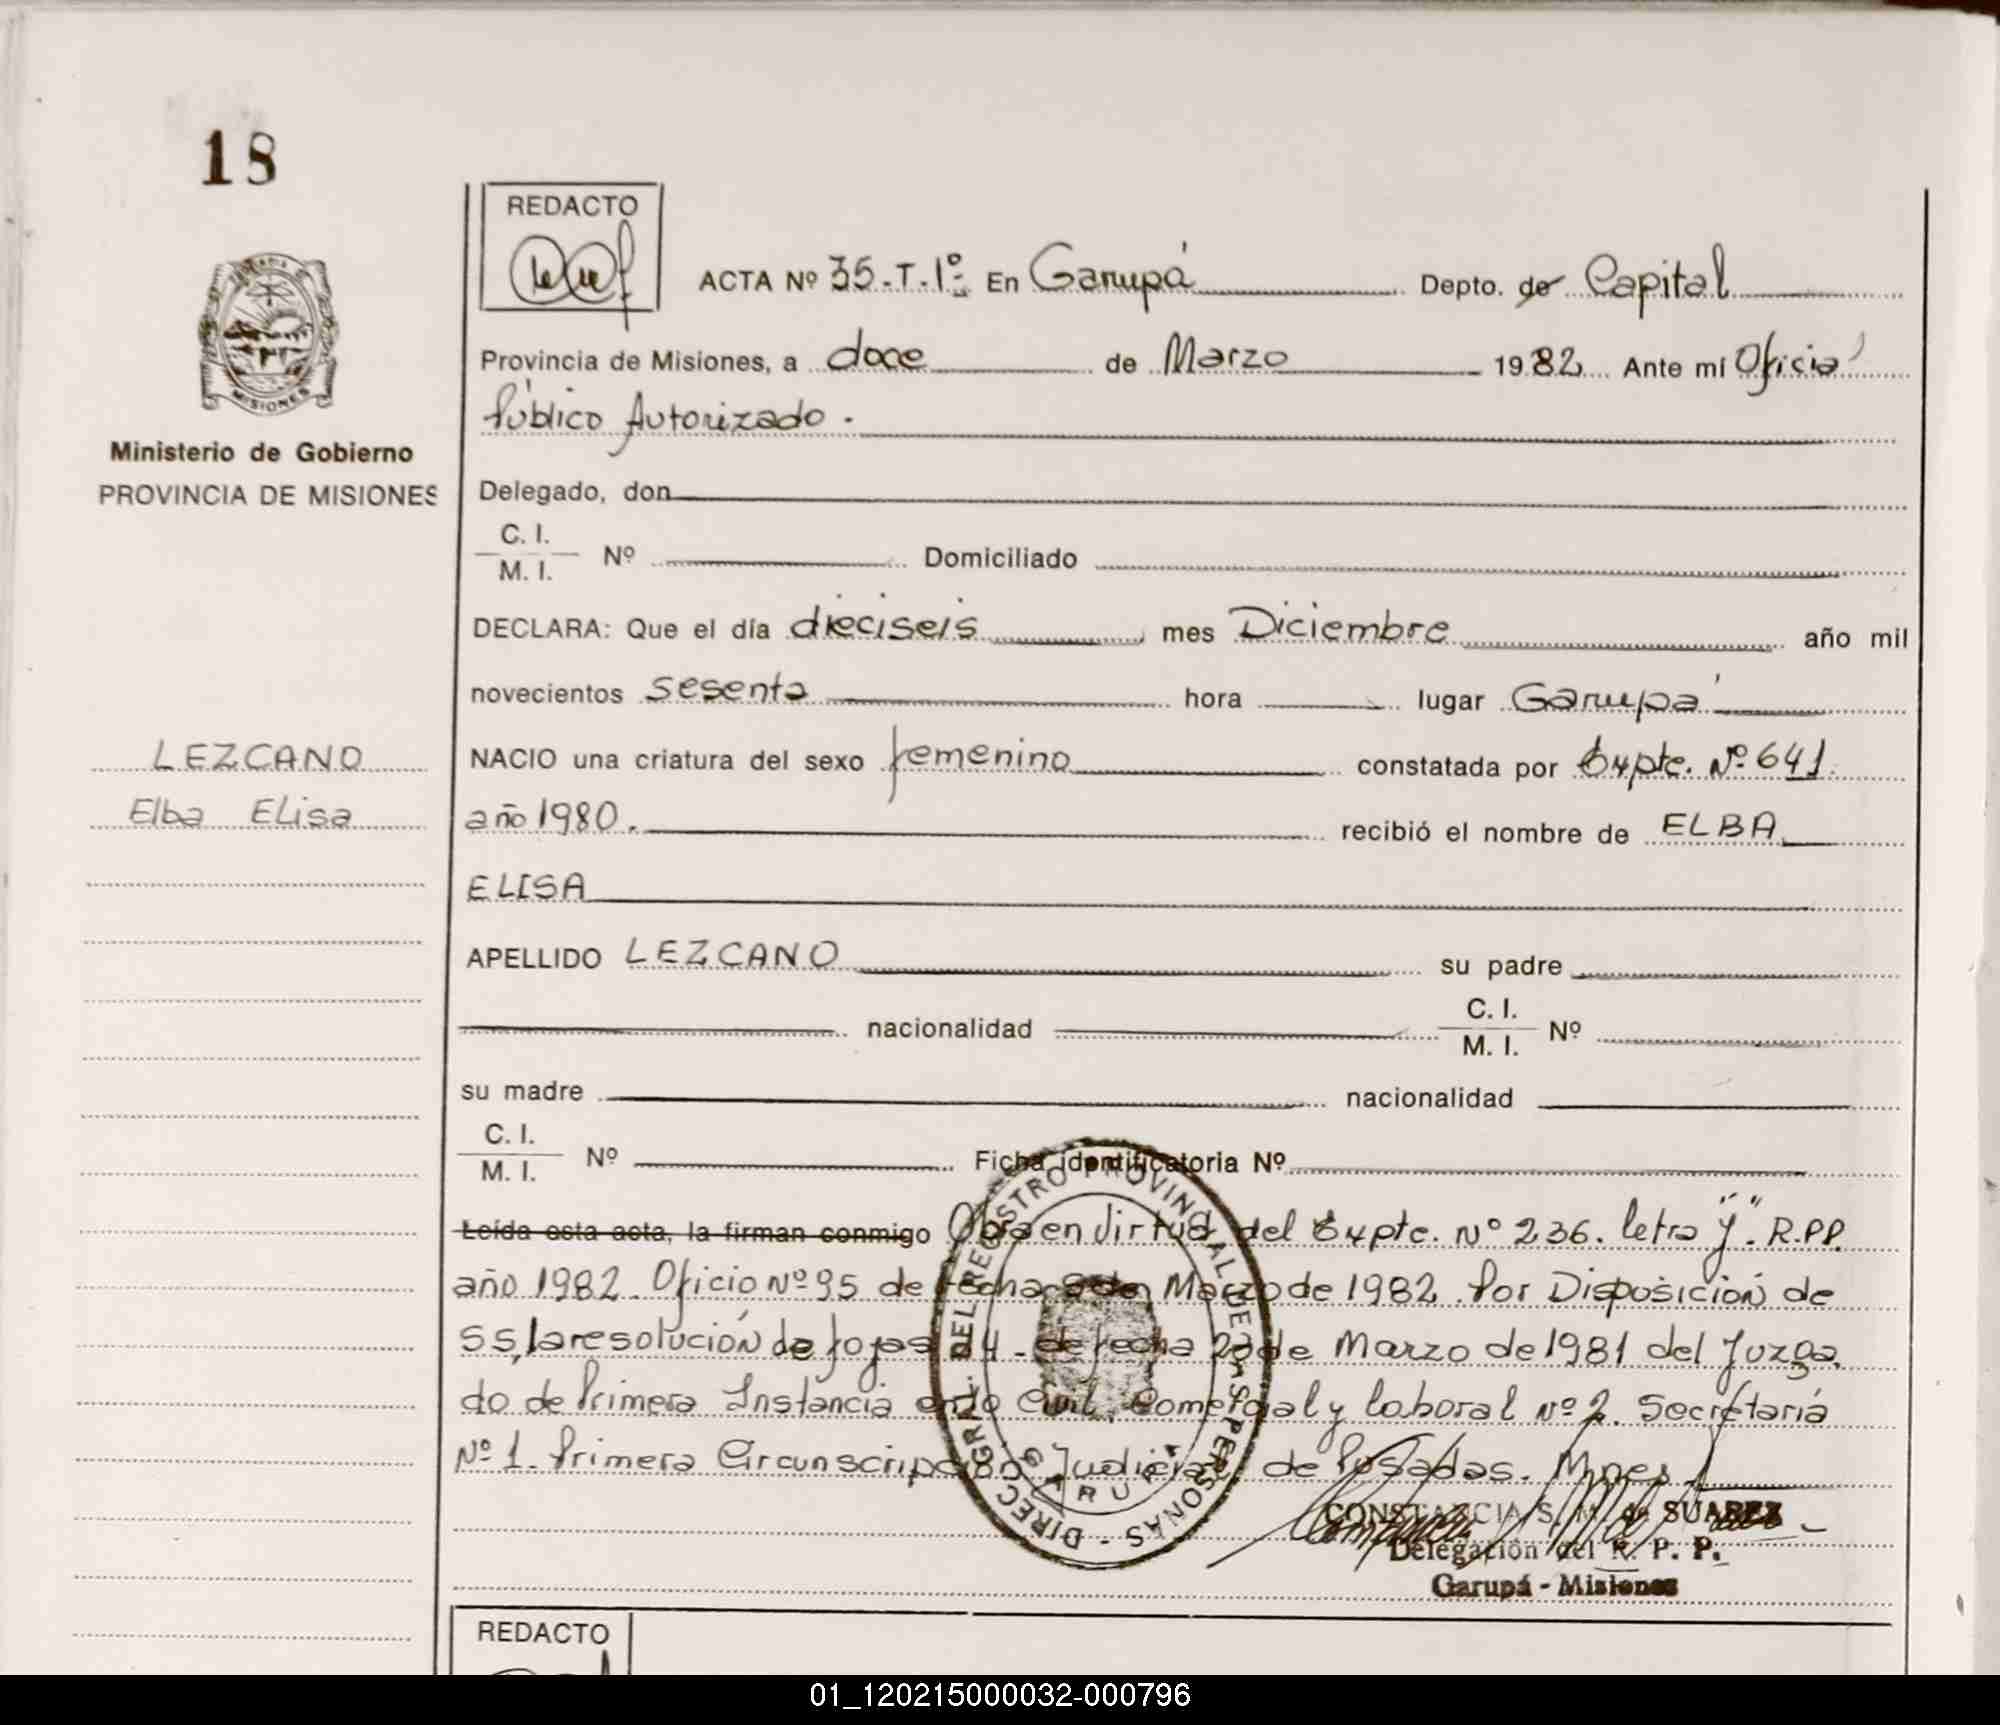 18
REDACTO
ACTA Nº 35-T-1º- En Garupá Depto. de Capital
Provincia de Misiones, a doce de Marzo 1982 Ante mí Oficial
Público Autorizado.
Ministerio de Gobierno
PROVINCIA DE MISIONES
MISIONES
Delegado, don
C. I.
M. I. Nº Domiciliado
DECLARA: Que el día dieciseis mes Diciembre año mil
novecientos sesenta hora lugar Garupá
LEZCANO
Elba Elisa
NACIO una criatura del sexo femenino constatada por Expte. Nº 641
año 1980. recibió el nombre de ELBA
ELISA
APELLIDO LEZCANO su padre
nacionalidad C. I.
M. I. Nº
su madre nacionalidad
C. I.
M. I. Nº Ficha identificatoria Nº
Leída esta acta, la firman conmigo Obra en virtud del Expte. Nº 236. letra "y". R.P.P.
año 1982. Oficio Nº 95 de fecha de Marzo de 1982. Por Disposición de
SS, la resolución de fojas 14 - de fecha de Marzo de 1981 del Juzga
do de Primera Instancia en lo Civil, Comercial y laboral Nº 2. Secretaría
Nº 1. Primera Circunscripción Judicial de Posadas. Mnes.
DIREC. GRAL. DEL REGISTRO PROVINCIAL DE LAS PERSONAS -
GARUPA
CONSTANCIA S. M. de SUAREZ
Delegación del R. P. P.
Garupá - Misiones
REDACTO
01_120215000032-000796